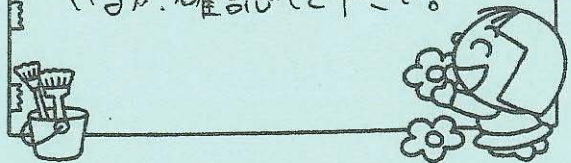 いるか、確認して下さい。